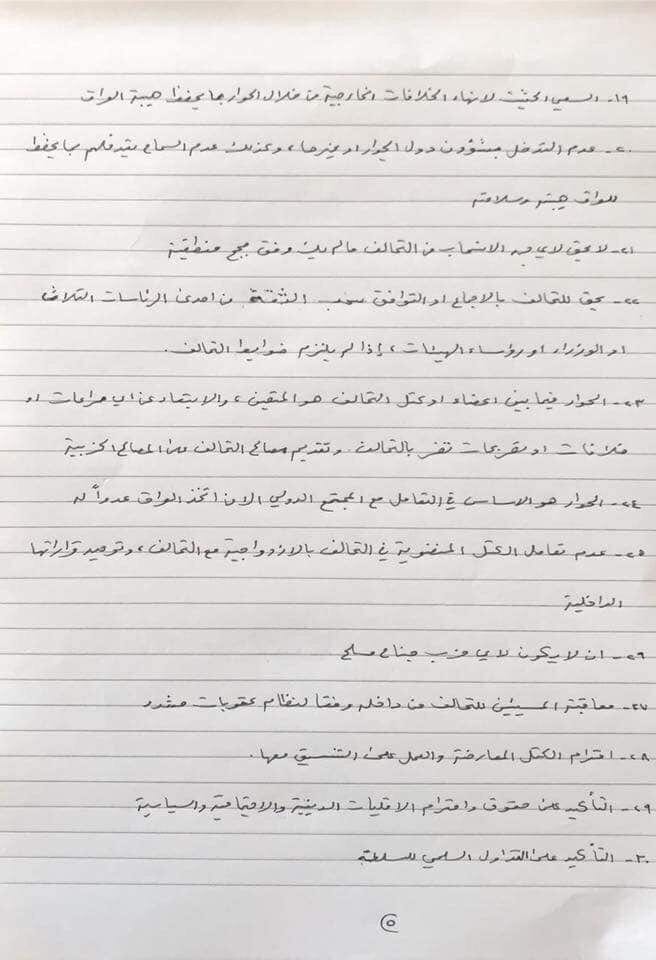 ١٩- السعي الحثيث لانهاء الخلافات الخارجية من خلال الحوار بما يحفظ هيبة العراق
٢٠- عدم التدخل بشؤون دول الجوار او غيرها، وكذلك عدم السماح بتدخلهم بما يحفظ
للعراق هيبته وسلامته
٢١- لا يحق لاي جهة الانسحاب من التحالف ما لم يك وفق حجج منطقية
٢٢- يحق للتحالف بالاجماع او التوافق سحب الثقة من احدى الرئاسات الثلاث
او الوزراء او رؤساء الهيئات، إذا لم يلتزم ضوابط التحالف.
٢٣- الحوار فيما بين اعضاء او كتل التحالف هو المتعين، والابتعاد عن اي صراعات او
خلافات او تصريحات تضر بالتحالف. وتقديم مصالح التحالف على المصالح الحزبية
٢٤- الحوار هو الاساس في التعامل مع المجتمع الدولي الا من اتخذ العراق عدواً له
٢٥- عدم تعامل الكتل المنضوية في التحالف بالازدواجية مع التحالف، وتوحيد قراراتها
الداخلية
٢٦- ان لا يكون لاي حزب جناح مسلح
٢٧- معاقبة المسيئين للتحالف من داخله وفقا لنظام عقوبات مشدد
٢٨- احترام الكتل المعارضة والعمل على التنسيق معها.
٢٩- التأكيد على حقوق واحترام الاقليات الدينية والاجتماعية والسياسية
٣٠- التأكيد على التداول السلمي للسلطة
٥